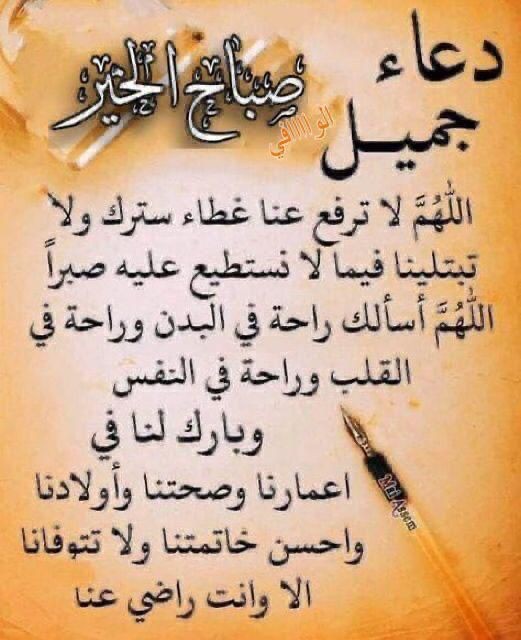 دعاء
جميل
صباح الخير
الواااافي
اللهُمَّ لا ترفع عنا غطاء سترك ولا
تبتلينا فيما لا نستطيع عليه صبراً
اللهُمَّ أسألك راحة في البدن وراحة في
القلب وراحة في النفس
وبارك لنا في
اعمارنا وصحتنا وأولادنا
واحسن خاتمتنا ولا تتوفانا
الا وانت راضي عنا